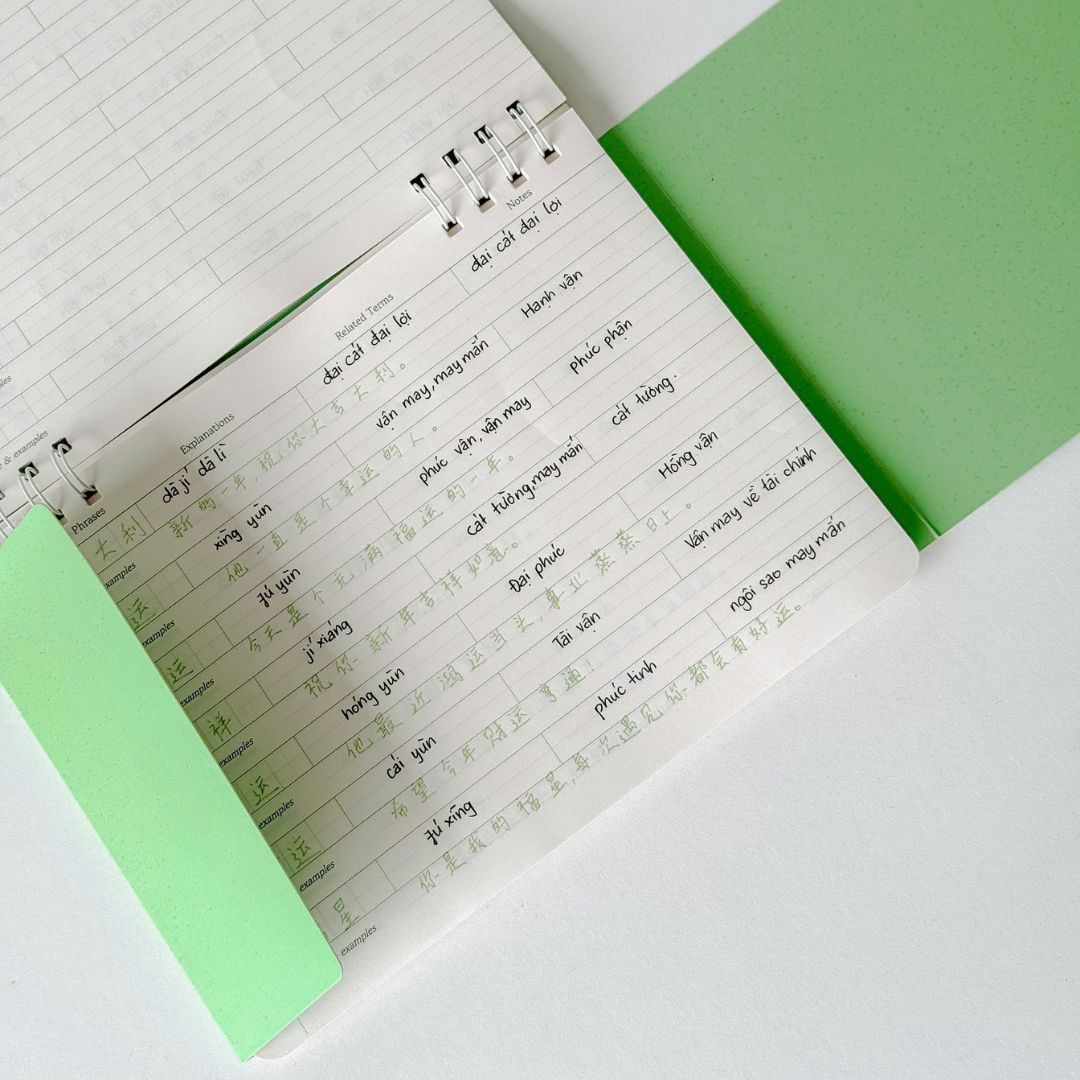 & examples
Phrases Explanations Related Terms Notes
大利 dā jí dā lì đại cát đại lợi đại cát đại lợi
examples 新的一年,祝你大吉大利。
运 xìng yùn vận may, may mắn Hạnh vận
examples 他一直是个幸运的人。
运 fú yùn phúc vận, vận may phúc phận
examples 今天是个充满福运的一年。
祥 jí xiáng cát tường, may mắn cát tường.
examples 祝你新年吉祥如意。
运 hóng yùn Đại phúc Hồng vận
examples 他最近鸿运当头,事业蒸蒸日上。
运 cái yùn Tài vận Vận may về tài chính
examples 希望今年财运亨通!
星 fú xīng phúc tinh ngôi sao may mắn
examples 你是我的福星,每次遇见你都会有好运。